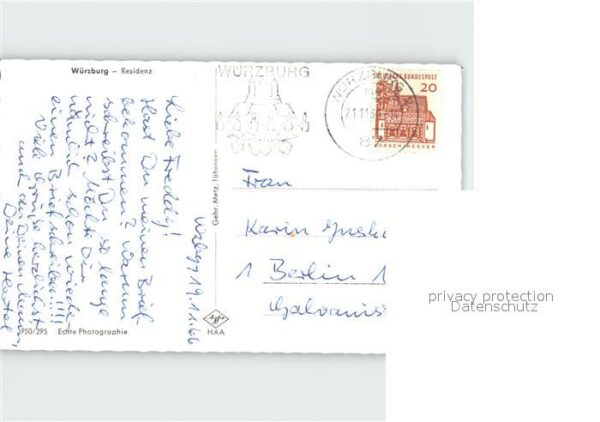 Würzburg – Residenz
Wzbg, 19.11.66
Liebe Freddy!
Hast Du meinen Brief
bekommen? Warum
schreibst Du so lange
nicht? Möchte Dir
nämlich schon wieder
einen Brief schreiben!!!!
Viele Grüße herzlichst
und an Deinen Mann,
Deine
950/295 Echte Photographie
Gebr. Metz, Tübingen
HAA
WÜRZBURG
WÜRZBURG
21.11.
DEUTSCHE BUNDESPOST
20
LORSCH HESSEN
Frau
Karin
1 Berlin 1
privacy protection
Datenschutz